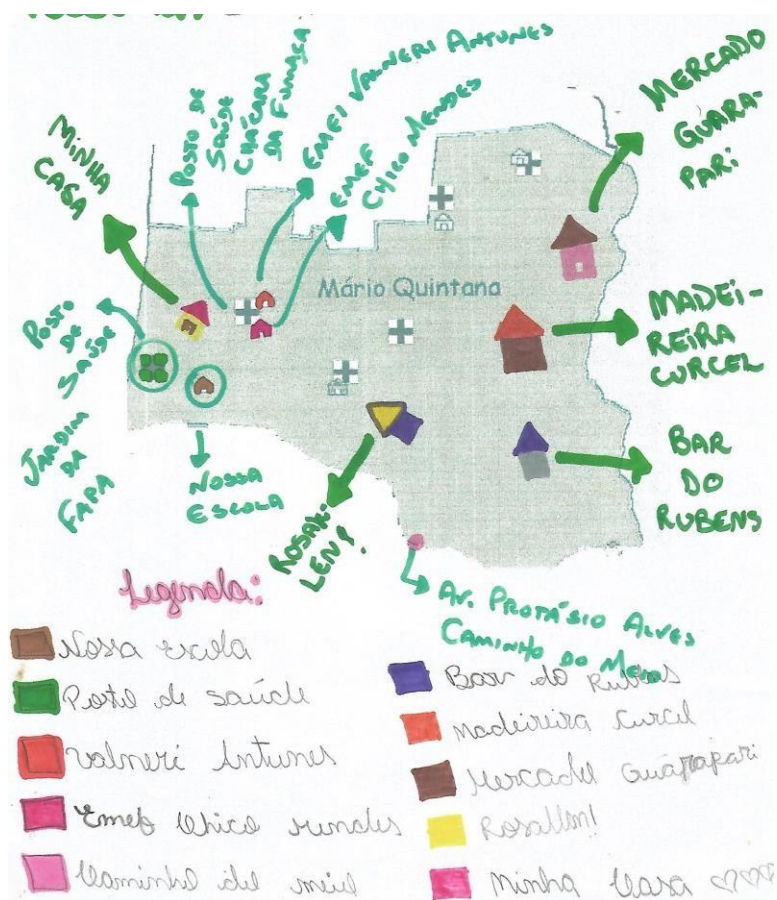 MINHA
CASA
POSTO DE
SAÚDE
CHÁCARA
DA FUMAÇA
EMEI VALNERI ANTUNES
EMEF
CHICO MENDES
MERCADO
GUARA-
PARI
Mário Quintana
POSTO
DE
SAÚDE
JARDIM
DA
FAPA
MADEI-
REIRA
CURCEL
NOSSA
ESCOLA
BAR
DO
RUBENS
AV. PROTÁSIO ALVES
CAMINHO DO MEIO
Legenda:
Nossa escola
Posto de saúde
Valneri Antunes
Emef Chico mendes
Caminho do meio
Bar do Rubens
Madeireira Curcel
Mercado Guarapari
Minha Casa